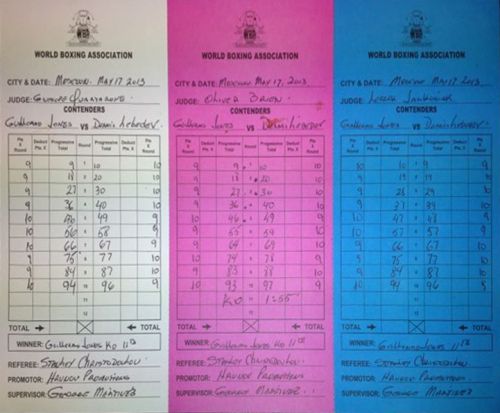 WORLD BOXING ASSOCIATION
CITY & DATE: Moscow. May 17 2013
JUDGE:
CONTENDERS
Guillermo Jones VS Denis Lebedev
Pts X Round Deduct Pts. X Progressive Total Round Progressive Total Deduct Pts. X Pts X Round
9 9 1 10 10
9 18 2 20 10
9 27 3 30 10
9 36 4 40 10
10 46 5 49 9
10 56 6 58 9
10 66 7 67 9
9 75 8 77 10
9 84 9 87 10
10 94 10 96 9
11
12
TOTAL TOTAL
WINNER: Guillermo Jones KO 11th
REFEREE: Stanley Christodoulou
PROMOTOR: Hrunov Promotions
SUPERVISOR: George Martinez
WORLD BOXING ASSOCIATION
CITY & DATE: Moscow May 17, 2013
JUDGE: Oliver Brien
CONTENDERS
Guillermo Jones VS Denis Lebedev
Pts X Round Deduct Pts. X Progressive Total Round Progressive Total Deduct Pts. X Pts X Round
9 9 1 10 10
9 18 2 20 10
9 27 3 30 10
9 36 4 40 10
10 46 5 49 9
9 55 6 59 10
9 64 7 69 10
10 74 8 78 9
9 83 9 88 10
10 93 10 97 9
KO 11 1:55
12
TOTAL TOTAL
WINNER: Guillermo Jones KO 11th
REFEREE: Stanley Christodoulou
PROMOTOR: Hrunov Promotions
SUPERVISOR: George Martinez
WORLD BOXING ASSOCIATION
CITY & DATE: Moscow May 17 2013
JUDGE:
CONTENDERS
Guillermo Jones VS Denis Lebedev
Pts X Round Deduct Pts. X Progressive Total Round Progressive Total Deduct Pts. X Pts X Round
10 10 1 9 9
9 19 2 19 10
9 28 3 29 10
9 37 4 39 10
10 47 5 48 9
10 57 6 57 9
9 66 7 67 10
9 75 8 77 10
9 84 9 87 10
10 94 10 96 9
11
12
TOTAL TOTAL
WINNER: Guillermo Jones 11th
REFEREE: Stanley Christodoulou
PROMOTOR: Hrunov Promotions
SUPERVISOR: George Martinez